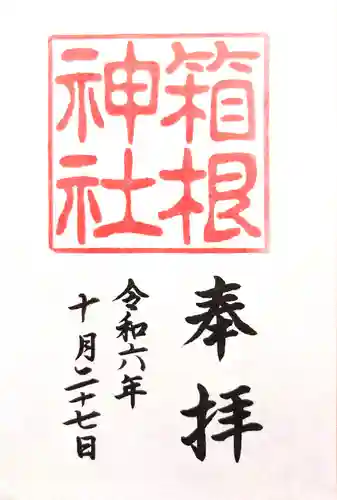 箱根
神社
奉拝
令和六年
十月二十七日